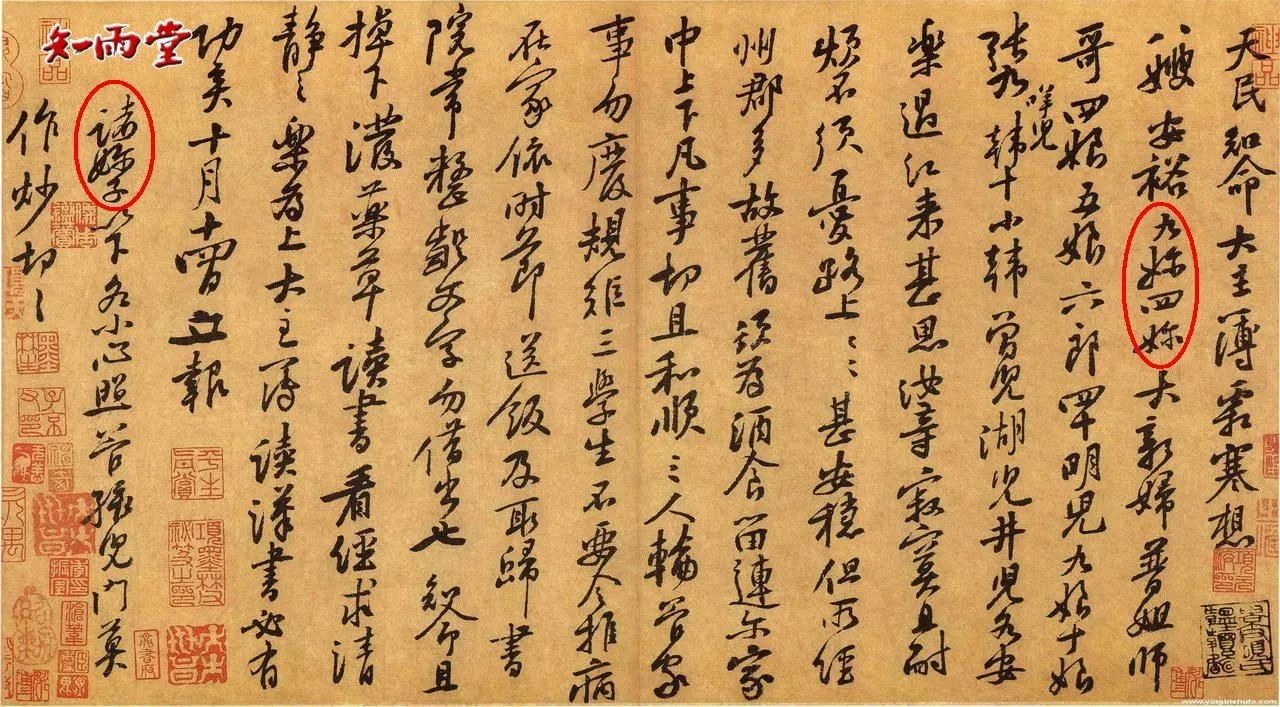 知雨堂
天民知命大主簿霜寒想
八嫂安裕九妳四妳大新婦普姐師
哥四娘五娘六郎四十明兒九娘十娘
張九咩兒韓十小韓曾兒湖兒井兒各安
樂過江來甚思汝等寂寞且耐
煩不須憂路上〻甚安穩但所經
州郡多故舊須為酒食留連尔家
中上下凡事切且和順三人輪管家
事勿廢規矩三學生不要令推病
在家依時節送飯及取歸書
院常整齪文字勿借出也知命且
掉下潑藥草讀書看經求清
靜之樂為上大主簿讀漢書必有
功矣十月十四日立報
諸妳子以下各小心照管孩兒門莫
作炒切〻
www.yingbishufa.com